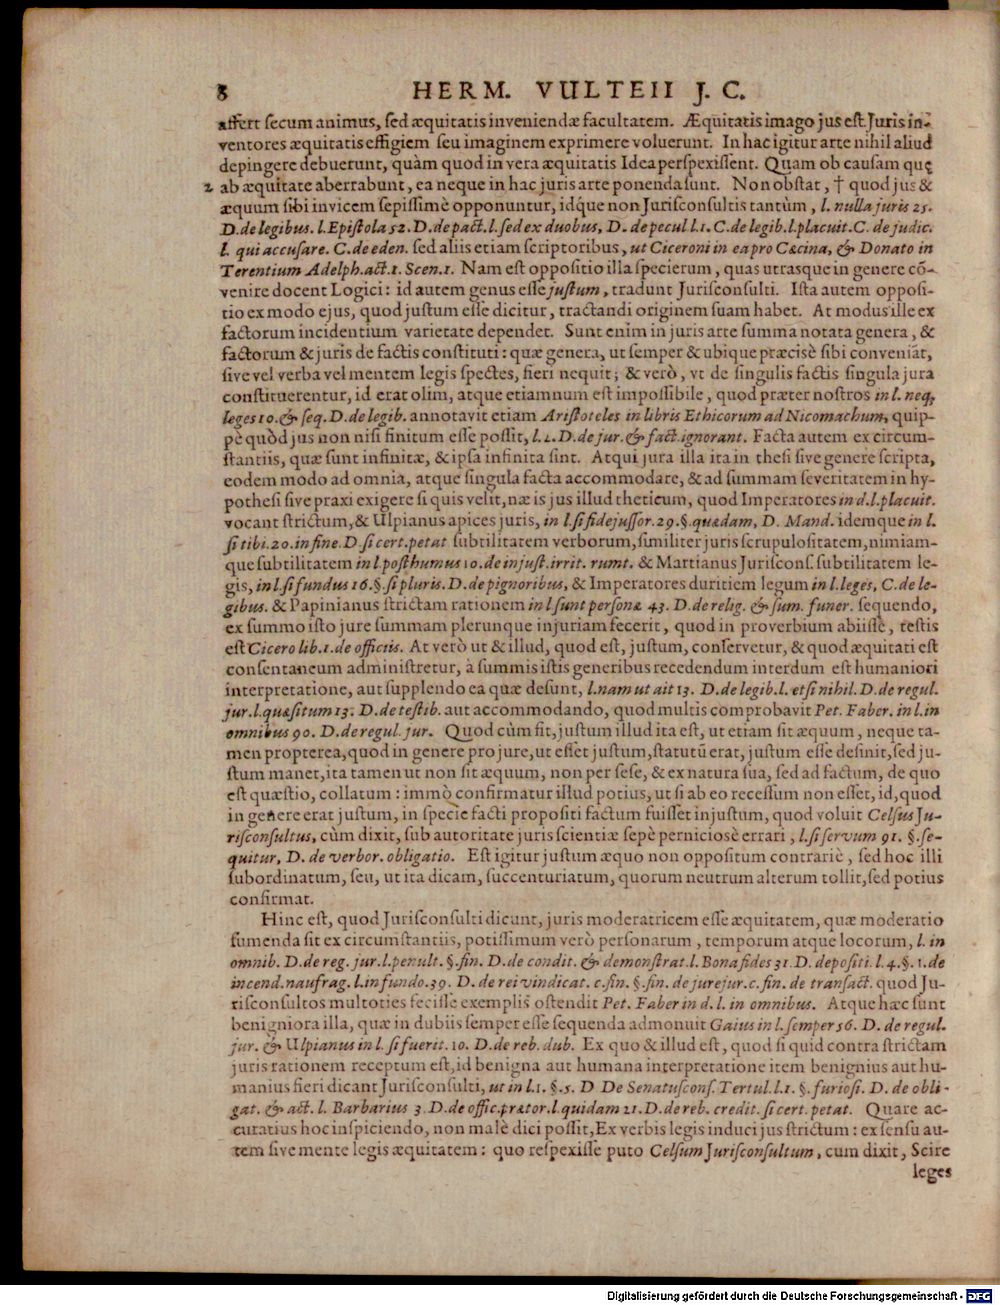 8 HERM. VULTEII J. C.
affert ſecum animus, ſed æquitatis inveniendæ facultatem. Æquitatis imago jus eſt Juris in-
ventores æquitatis effigiem ſeu imaginem exprimere voluerunt. In hac igitur arte nihil aliud
depingere debuerunt, quàm quod in vera æquitatis Idea perſpexiſſent. Quam ob cauſam quę
2 ab æquitate aberrabunt, ea neque in hac juris arte ponenda ſunt. Non obſtat, † quod jus &
æquum ſibi invicem ſepiſſimè opponuntur, idq́ue non Juriſconſultis tantùm, l. nulla juris 25.
D. de legibus. l. Epiſtola 52. D. de pact. l. ſed ex duobus, D. de pecul l. 1. C. de legib. l. placuit. C. de judic.
l. qui accuſare. C. de eden. ſed aliis etiam ſcriptoribus, ut Ciceroni in ea pro Cæcina, & Donato in
Terentium Adelph. act. 1. Scen. 1. Nam eſt oppoſitio illa ſpecierum, quas utrasque in genere cō-
venire docent Logici: id autem genus eſſe juſtum, tradunt Juriſconſulti. Iſta autem oppoſi-
tio ex modo ejus, quod juſtum eſſe dicitur, tractandi originem ſuam habet. At modus ille ex
factorum incidentium varietate dependet. Sunt enim in juris arte ſumma notata genera, &
factorum & juris de factis conſtituti: quæ genera, ut ſemper & ubique præcisè ſibi conveniāt,
ſive vel verba vel mentem legis ſpectes, fieri nequit; & verò, vt de ſingulis factis ſingula jura
conſtituerentur, id erat olim, atque etiamnum eſt impoſſibile, quod præter noſtros in l. neq,
leges 10. & ſeq. D. de legib. annotavit etiam Ariſtoteles in libris Ethicorum ad Nicomachum, quip-
pè quòd jus non niſi finitum eſſe poſſit, l. 2. D. de jur. & fact. ignorant. Facta autem ex circum-
ſtantiis, quæ ſunt infinitæ, & ipſa infinita ſint. Atqui jura illa ita in theſi ſive genere ſcripta,
eodem modo ad omnia, atque ſingula facta accommodare, & ad ſummam ſeveritatem in hy-
potheſi ſive praxi exigere ſi quis velit, næ is jus illud theticum, quod Imperatores in d. l. placuit.
vocant ſtrictum, & Ulpianus apices juris, in l. ſi fidejuſſor. 29. §. quædam, D. Mand. idemque in l.
ſi tibi. 20. in fine. D. ſi cert. petat ſubtilitatem verborum, ſimiliter juris ſcrupuloſitatem, nimiam-
que ſubtilitatem in l. poſthumus 10. de injuſt. irrit. rumt. & Martianus Juriſconſ. ſubtilitatem le-
gis, in l. ſi fundus 16. §. ſi pluris. D. de pignoribus, & Imperatores duritiem legum in l. leges, C. de le-
gibus. & Papinianus ſtrictam rationem in l ſunt perſonæ 43. D. de relig. & ſum. funer. ſequendo,
ex ſummo iſto jure ſummam plerunque injuriam fecerit, quod in proverbium abiiſſe, teſtis
eſt Cicero lib. 1. de officiis. At verò ut & illud, quod eſt, juſtum, conſervetur, & quod æquitati eſt
conſentaneum adminiſtretur, à ſummis iſtis generibus recedendum interdum eſt humaniori
interpretatione, aut ſupplendo ea quæ deſunt, l. nam ut ait 13. D. de legib. l. etſi nihil. D. de regul.
jur. l. quæſitum 13. D. de teſtib. aut accommodando, quod multis comprobavit Pet. Faber. in l. in
omnibus 90. D. de regul. jur. Quod cùm fit, juſtum illud ita eſt, ut etiam ſit æquum, neque ta-
men propterea, quod in genere pro jure, ut eſſet juſtum, ſtatutū erat, juſtum eſſe deſinit, ſed ju-
ſtum manet, ita tamen ut non ſit æquum, non per ſeſe, & ex natura ſua, ſed ad factum, de quo
eſt quæſtio, collatum: immò confirmatur illud potius, ut ſi ab eo receſſum non eſſet, id, quod
in genere erat juſtum, in ſpecie facti propoſiti factum fuiſſet injuſtum, quod voluit Celſus Ju-
riſconſultus, cùm dixit, ſub autoritate juris ſcientiæ ſepè pernicioſè errari, l. ſi ſervum 91. §. ſe-
quitur, D. de verbor. obligatio. Eſt igitur juſtum æquo non oppoſitum contrariè, ſed hoc illi
ſubordinatum, ſeu, ut ita dicam, ſuccenturiatum, quorum neutrum alterum tollit, ſed potius
confirmat.
Hinc eſt, quod Juriſconſulti dicunt, juris moderatricem eſſe æquitatem, quæ moderatio
ſumenda ſit ex circumſtantiis, potiſſimum verò perſonarum, temporum atque locorum, l. in
omnib. D. de reg. jur. l. penult. §. fin. D. de condit. & demonſtrat. l. Bona fides 31. D. depoſiti. l. 4. §. 1. de
incend. naufrag. l. in fundo. 39. D. de rei vindicat. c. fin. §. fin. de jurejur. c. fin. de tranſact. quod Ju-
riſconſultos multoties feciſſe exemplis oſtendit Pet. Faber in d. l. in omnibus. Atque hæc ſunt
benigniora illa, quæ in dubiis ſemper eſſe ſequenda admonuit Gaius in l. ſemper 56. D. de regul.
jur. & Ulpianus in l. ſi fuerit. 10. D. de reb. dub. Ex quo & illud eſt, quod ſi quid contra ſtrictam
juris rationem receptum eſt, id benigna aut humana interpretatione item benignius aut hu-
manius fieri dicant Juriſconſulti, ut in l. 1. §. 5. D De Senatuſconſ. Tertul. l. 1. §. furioſi. D. de obli-
gat. & act. l. Barbarius 3 D. de offic. prætor. l. quidam 21. D. de reb. credit. ſi cert. petat. Quare ac-
curatius hoc inſpiciendo, non malè dici poſſit, Ex verbis legis induci jus ſtrictum: ex ſenſu au-
tem ſive mente legis æquitatem: quo reſpexiſſe puto Celſum Juriſconſultum, cum dixit, Scire
leges
Digitalisierung gefördert durch die Deutsche Forschungsgemeinschaft - DFG